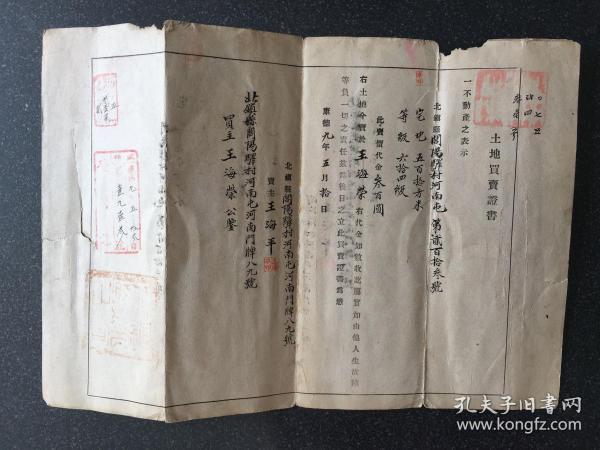 土地買賣證書
一不動產之表示
北鎮縣閭陽驛村河南屯第貳百拾叁號
宅地五百拾方米
等級六拾四級
此賣價代金叁百圓
右土地今賣於王海榮右代金如數收訖屬實如由他人生故障
等負一切之責任茲為後日之立此買賣證書為憑
康德九年五月拾日
北鎮縣閭陽驛村河南屯河南門牌八九號
賣主王海平
北鎮縣閭陽驛村河南屯河南門牌八九號
買主王海榮公鑒
孔夫子旧书网